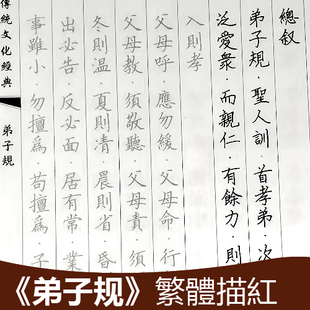 總叙
弟子規·聖人訓·首孝弟·次
泛愛衆·而親仁·有餘力·則
入則孝
父母呼·應勿緩·父母命·行
父母教·須敬聽·父母責·須
冬則温·夏則凊·晨則省·昏
出必告·反必面·居有常·業
事雖小·勿擅爲·苟擅爲·子
傳統文化經典
弟子規
《弟子规》繁體描紅